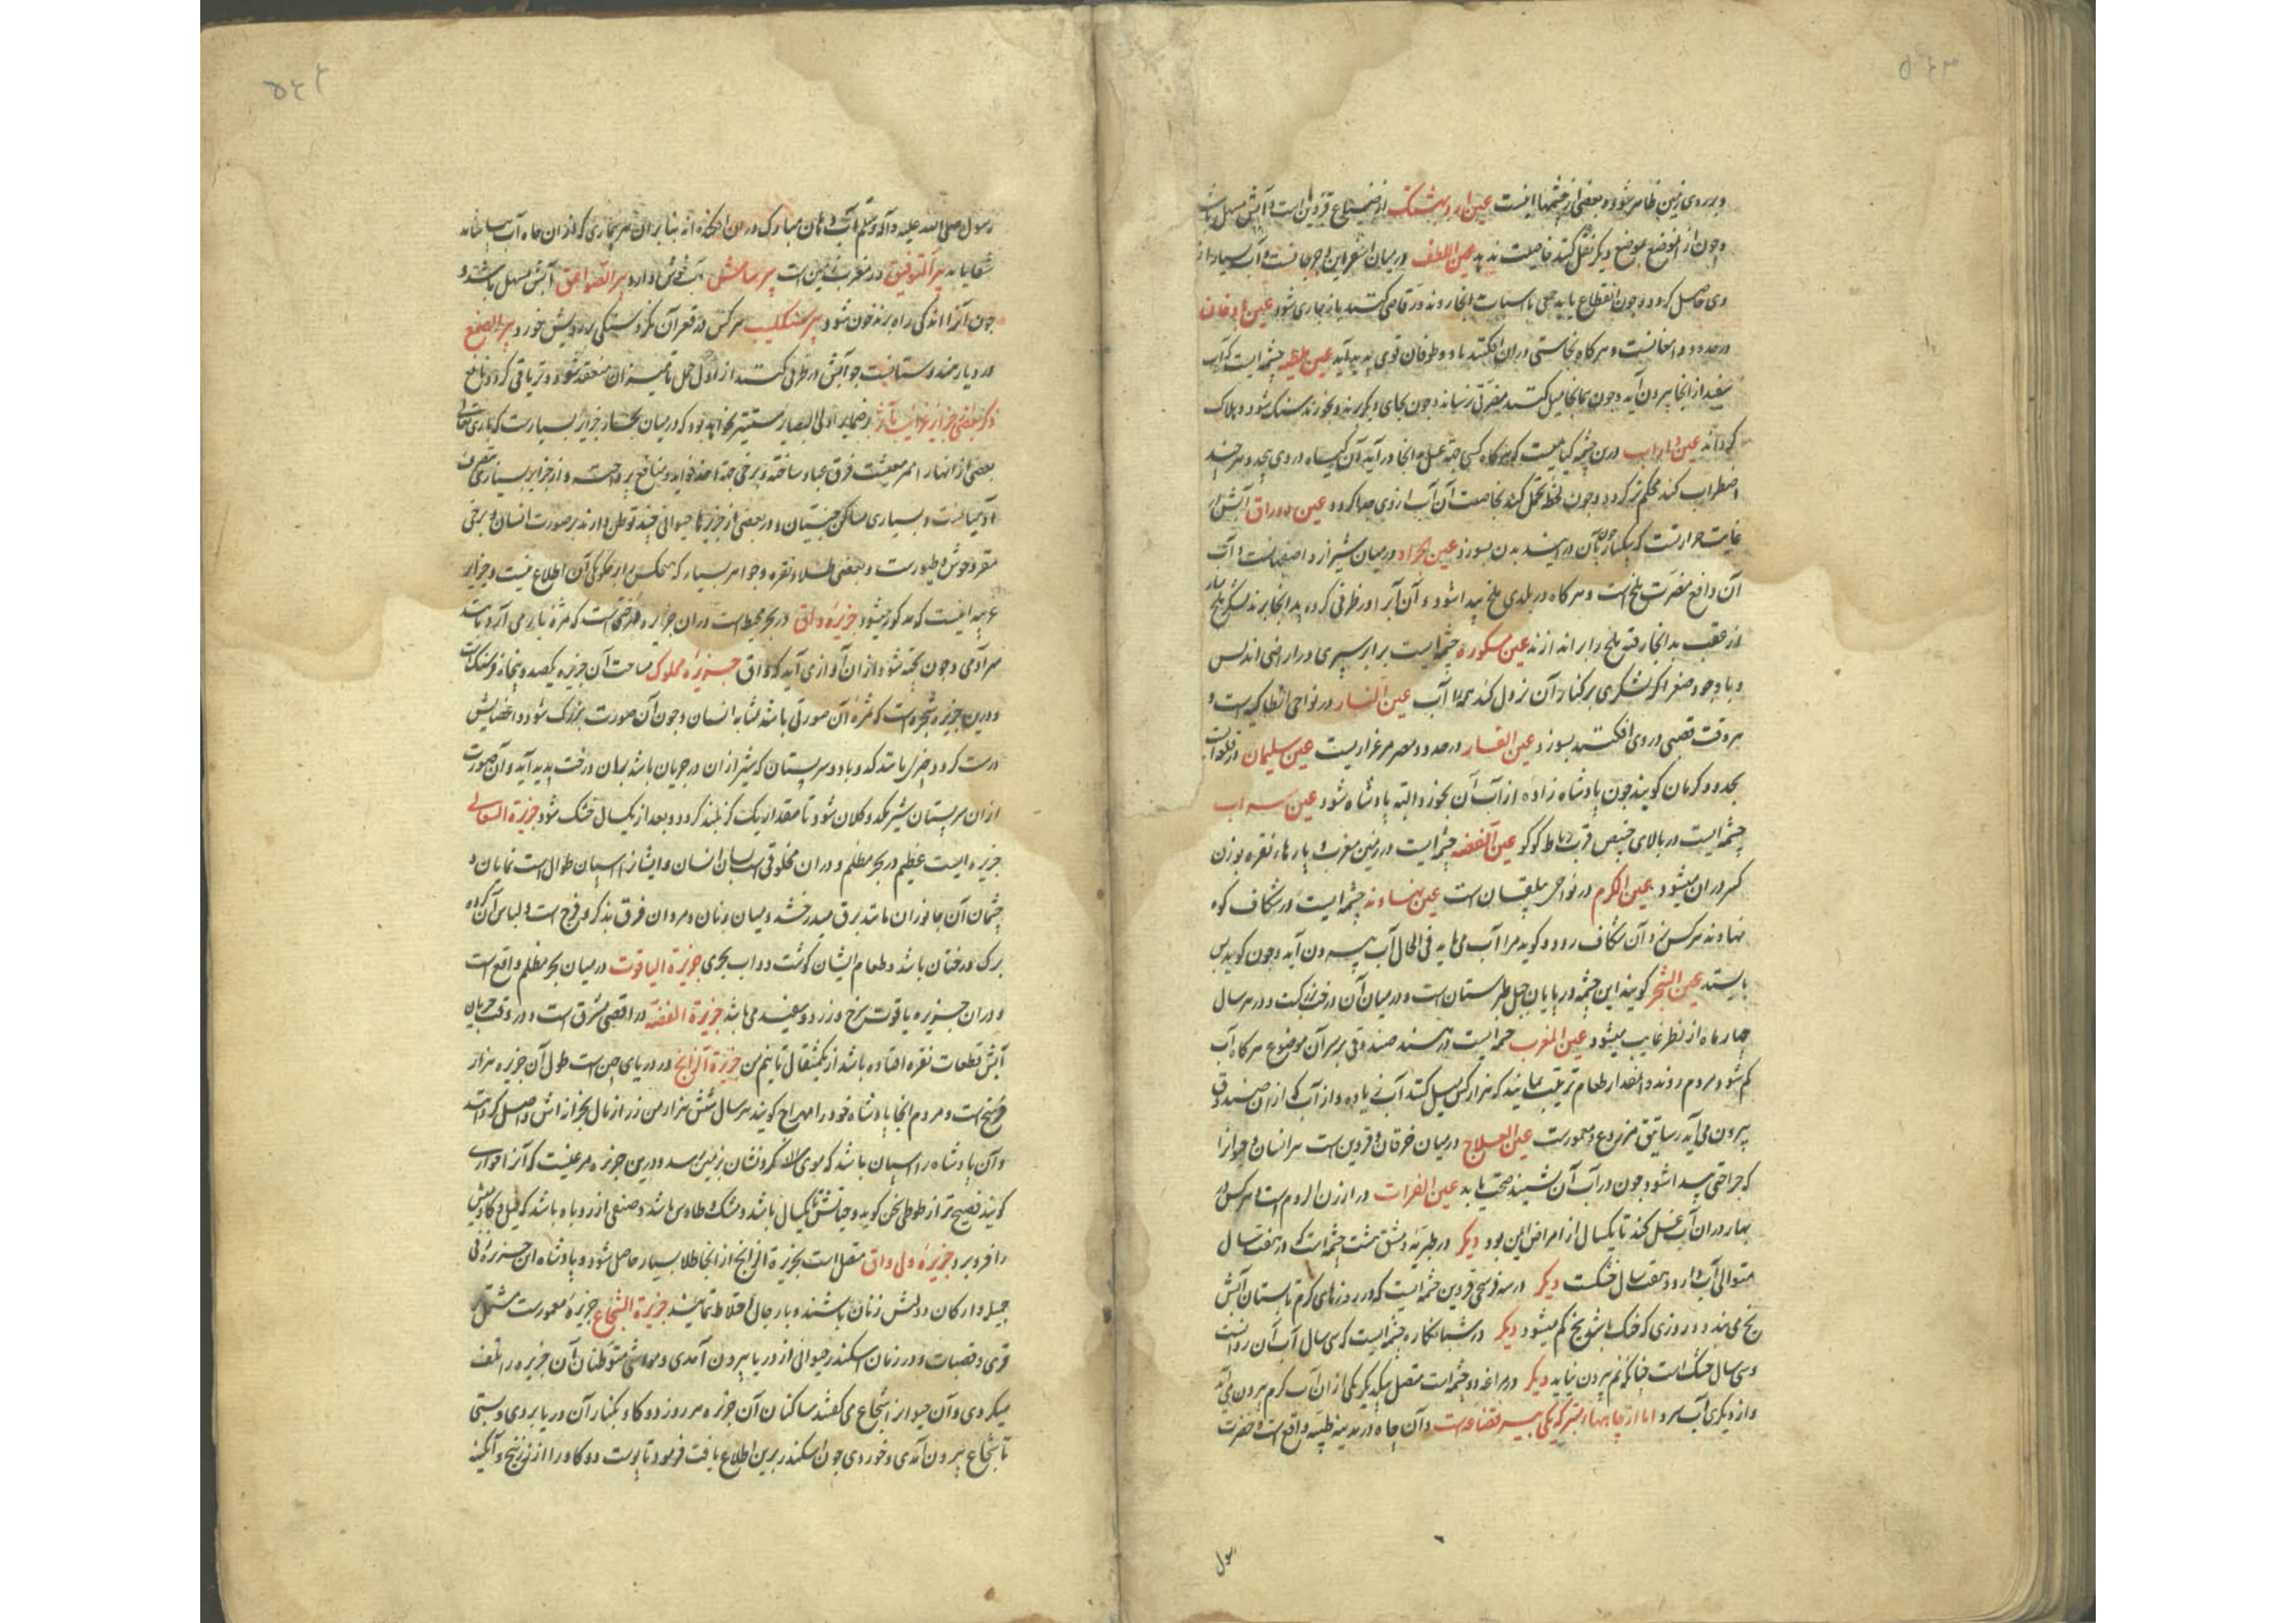 و بر روی زمین ظاهر شود و بعضی از چشمها اینست عین اردبهشتک از ضیاع قزوین است و آبش مسهل باشد
و چون از آنموضع بموضع دیگر نقل کنند خاصیت ندهد عین اللطف در میان اسفراین و جرجانست و آب بسیار از
وی حاصل گردد و چون انقطاع یابد جمعی با اسباب آنجا روند و رقاصی کنند باز جاری شود عین بادخان
در حدود دامغانست و هرگاه نجاستی در آن افکنند باد و طوفان قوی پدید آید عین چشمه ایست که آب
سفید از آنجا بیرون آید و چون بدانجا میل کنند مضرتی نرساند و چون بجای دیگر برند و بخورند سنگ شود و هلاک
گرداند عین داراب درین چشمه گیاهیست که هرگاه کسی جهة غسل بآنجا درآید آن گیاه در وی پیچد و هرچند
اضطراب کند محکم تر گردد و چون لحظه تحمل کند بخاصیت آن آب از وی جدا گردد عین دوراق آبش در
غایت حرارتست که یکبار چون بآن درآیند بدن بسوزد عین الجراد در میان شیراز و اصفهانست و آب
آن دافع مضرت ملخ است و هرگاه در بلدی ملخ پیدا شود و آن آب را در ظرفی کرده بدانجا برند لشکر ملخ سیاه
از عقب بدانجا رفته ملخ را براندازند عین سکوره چشمه ایست برابر سپری در اراضی اندلس
و با وجود صغر اگر لشکری بر کنار آن نزول کند همه را آب عین النار در نواحی انطاکیه است و
هر وقت قصبی در وی افکنند بسوزد عین القار در حدود مصر مرغزاریست عین سلیمان
بحدود کرمان گویند چون پادشاه زاده از آب آن بخورد البته پادشاه شود عین سراب
چشمه ایست در بالای خبیص قرب رباط کوکو عین الفضه چشمه ایست در زمین مغرب و پارهاء نقره بوزن
کسر در آن میشود عین الکرم در نواحی بیلقان است عین نهاوند چشمه ایست در شکاف کوه
نهاوند هر کس در آن شکاف رود و گوید مرا آب می باید فی الحال آب بیرون آید و چون گوید بس
بایستد عین الشجر گویند این چشمه در پایان جبل طبرستان است و در میان آن درختیست و در هر سال
چهار ماه از نظر غایب میشود عین المغرب چشمه ایست در هند صندوقی بر سر آن موضوع هرگاه آب
کم شود مردم روند و آنمقدار طعام ترتیب نمایند که هزار کس میل کنند آب زیاده و از آب که از آن صندوق
بیرون می آید رساتیق مزروع و معمورست عین العلاج در میان خرقان و قزوین است هر انسان و حیوان را
که جراحتی پیدا شود چون در آب آن نشیند صحت یابد عین الفرات در ارزن الروم است هر کس در
بهار در آن آب غسل کند تا یکسال از امراض ایمن بود دیگر در طبریه دمشق هشت چشمه است که در هفت سال
متوالی آب دارد و هفت سال خشکست دیگر در سه فرسخی قزوین چشمه ایست که در روزهای گرم تابستان آبش
یخ می بندد و روزی که خنک باشد یخ کم میشود دیگر در شبانکاره چشمه ایست که سی سال آب آن روانست
و سی سال خشک است چنانکه نم بیرون نیاید دیگر در مراغه دو چشمه است متصل بیکدیگر یکی از آن آب گرم بیرون می آید
و از دیگری آب سرد اما از چاهها مشهورتر که یکی بیر قضاعه است و آن چاه در مدینه طیبه واقع است و حضرت
رسول
رسول صلی الله علیه و آله و سلم آب دهان مبارک در آن افکنده اند بنا بر آن هر بیماری که از آن چاه آب بیاشامد
شفا یابد بیر التوفیق در مغرب زمین است بیر سامش آب خوش دارد بیر الصواعق آبش مسهل باشد و
چون آنرا اندکی راه برند خون شود بیر سنکلیب هر کس در قعر آن نگرد سنگی بر رویش خورد بیر الصمغ
در دیار هندوستانست چو آبش در ظرفی کنند از اول حمل تا میزان منعقد شود و تریاقی گردد نافع
ذکر بعضی جزایر غرایب مآثر بر ضمایر اولی البصایر مستتر نخواهد بود که در میان بحار جزایر بسیارست که باری تعالی
بعضی از انهار ممر معیشت فرق عباد ساخته و برخی جهة اخذ فواید و منافع پرداخته و از جزایر بسیاری متصرف
آدمیانست و بسیاری مساکن جنیان و در بعضی از جزیرها حیوانی چند توطن دارند بر صورت انسان و برخی
مقر وحوش و طیورست و بعضی طلا و نقره و جواهر بسیار که هیچکس را بر چگونگی آن اطلاع نیست و جزایر
غریبه اینست که مذکور میشود جزیره واق در بحر محیط است در آن جزیره درختیست که ثمره ببار می آرد مانند
سر آدمی و چون پخته شود از آن آوازی آید که واق جزیره مملوک مساحت آن جزیره یکصد و پنجاه فرسنگ است
و درین جزیره شجریست که ثمره آن صورتی باشد مشابه انسان و چون آن صورت بزرگ شود و اعضایش
درست گردد بشکل باشد که دو با دو سر پستان که شیر از آن در جریان باشد بر آن درخت پدید آید و آن صورت
از آن سر پستان شیر مکد و کلان شود تا مقدار یک گز بلند گردد و بعد از یکسال خشک شود جزیرة السعالی
جزیره ایست عظیم در بحر مظلم و در آن مخلوقی است بسان انسان و ایشان را اسنان طوال است نمایان و
چشمان آن جانوران مانند برق میدرخشد و میان زنان و مردان فرق بذکر و فرج است و لباس آن گروه
برگ درختان باشد و طعام ایشان گوشت دواب بحری جزیرة الیاقوت در میان بحر مظلم واقع است
و در آن جزیره یاقوت سرخ و زرد و سفید می باشد جزیرة الفضه در اقصی مشرق است و در وقت جریان
آبش قطعات نقره افتاده باشد از یکمثقال تا نیم من جزیرة الزانج در دریای چین است طول آن جزیره هزار
فرسخ است و مردم آنجا پادشاه خود را مهراج گویند هر سال شش هزار من زر از مال بخزانه اش واصل گردد
و آن پادشاه را اسپان باشد که موی یال و گردنشان بزمین رسد و درین جزیره مرغیست که آنرا حواری
گویند فصیح تر از طوطی سخن گوید و حیاتش یکسال باشد و مشک و طاوس باشد و صنفی از زرافه باشد که فیل و گاومیش
را فرو برد جزیره ول واق متصل است بجزیرة الزانج از آنجا طلا بسیار حاصل شود و پادشاه آن جزیره زنی
جمیله و ارکان دولتش زنان باشند و با رجال اختلاط ننمایند جزیرة الشجاع جزیره معمورست مشتمل بر
قری و قصبات و در زمان اسکندر حیوانی از دریا بیرون آمدی و مواشی متوطنان آن جزیره را تلف
میکردی و آن حیوانرا شجاع می گفتند ساکنان آن جزیره هر روز دو گاو بکنار آن دریا بردی و بستی
تا شجاع بیرون آمدی و خوردی چون اسکندر برین اطلاع یافت فرمود تا پوست دو گاو را از زرنیخ و آبگینه